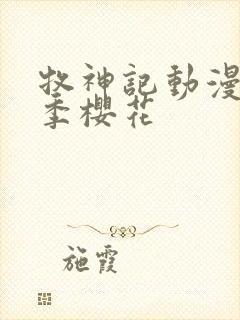 牧神記動漫
季櫻花
施霞